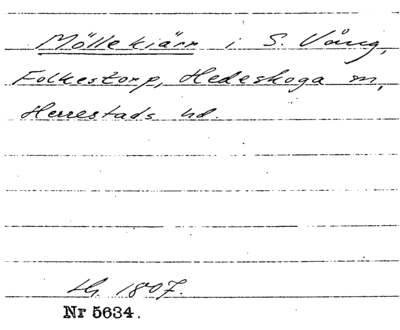 Möllekiärr i S. Vång,
Folkestorp, Hedeskoga sn,
Herrestads hd.
Lg 1807.
Nr 5634.